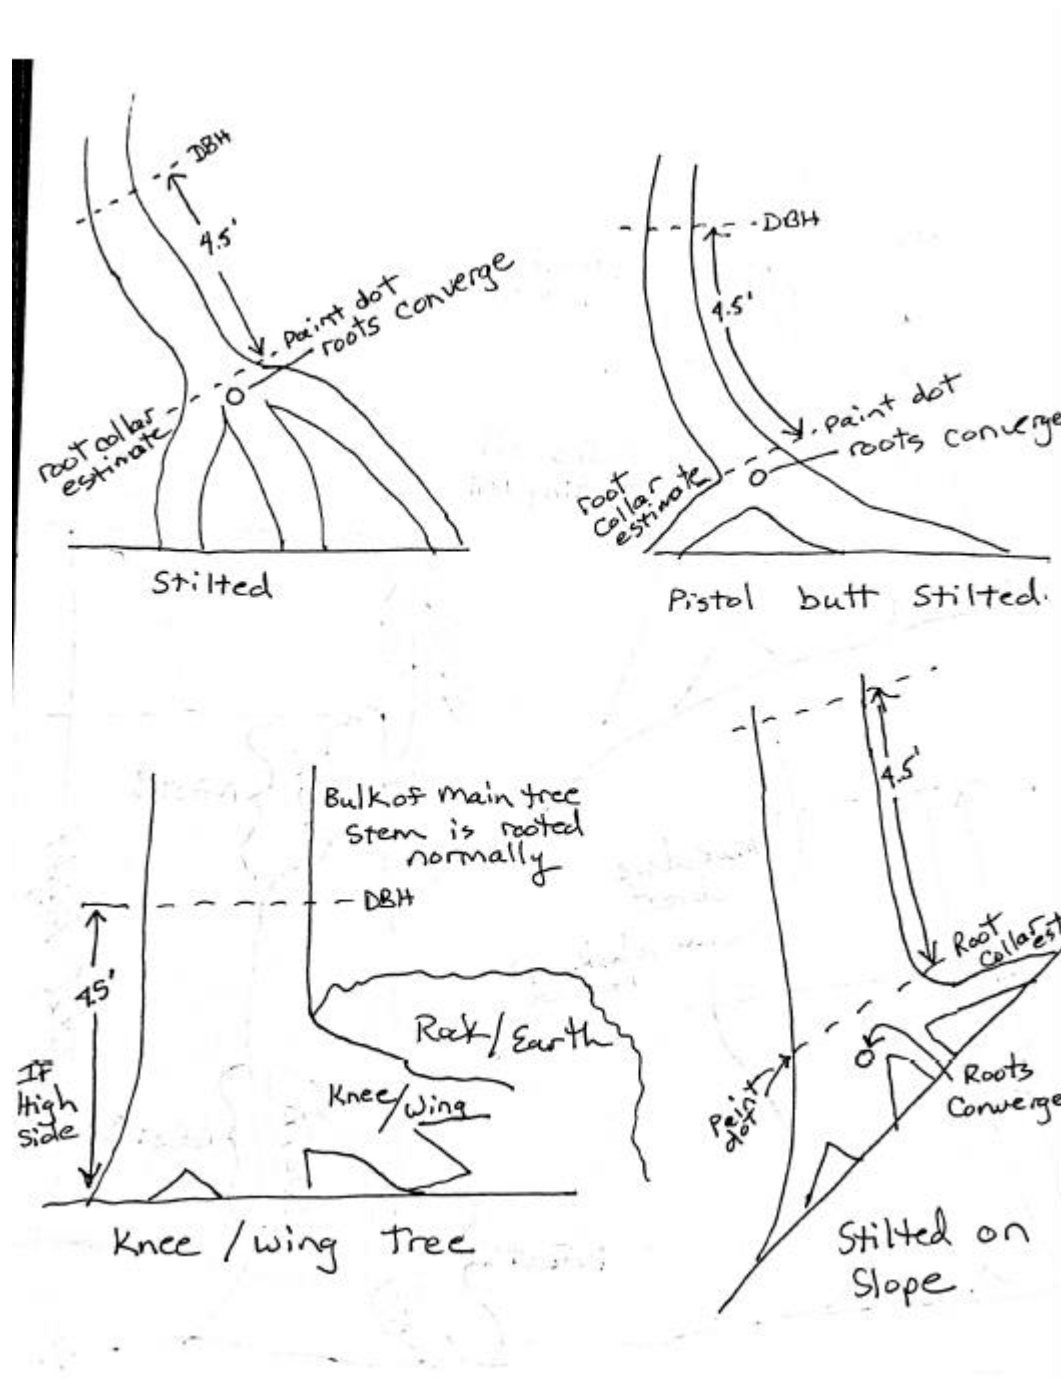 DBH
4.5'
paint dot
roots converge
root collar
estimate
Stilted
DBH
4.5'
paint dot
roots converge
root
collar
estimate
Pistol butt Stilted.
Bulk of main tree
stem is rooted
normally
DBH
4.5'
IF
High
side
Rock/Earth
Knee/wing
Knee/wing Tree
4.5'
Root
Collar est
Paint
dot
Roots
Converge
Stilted on
Slope.